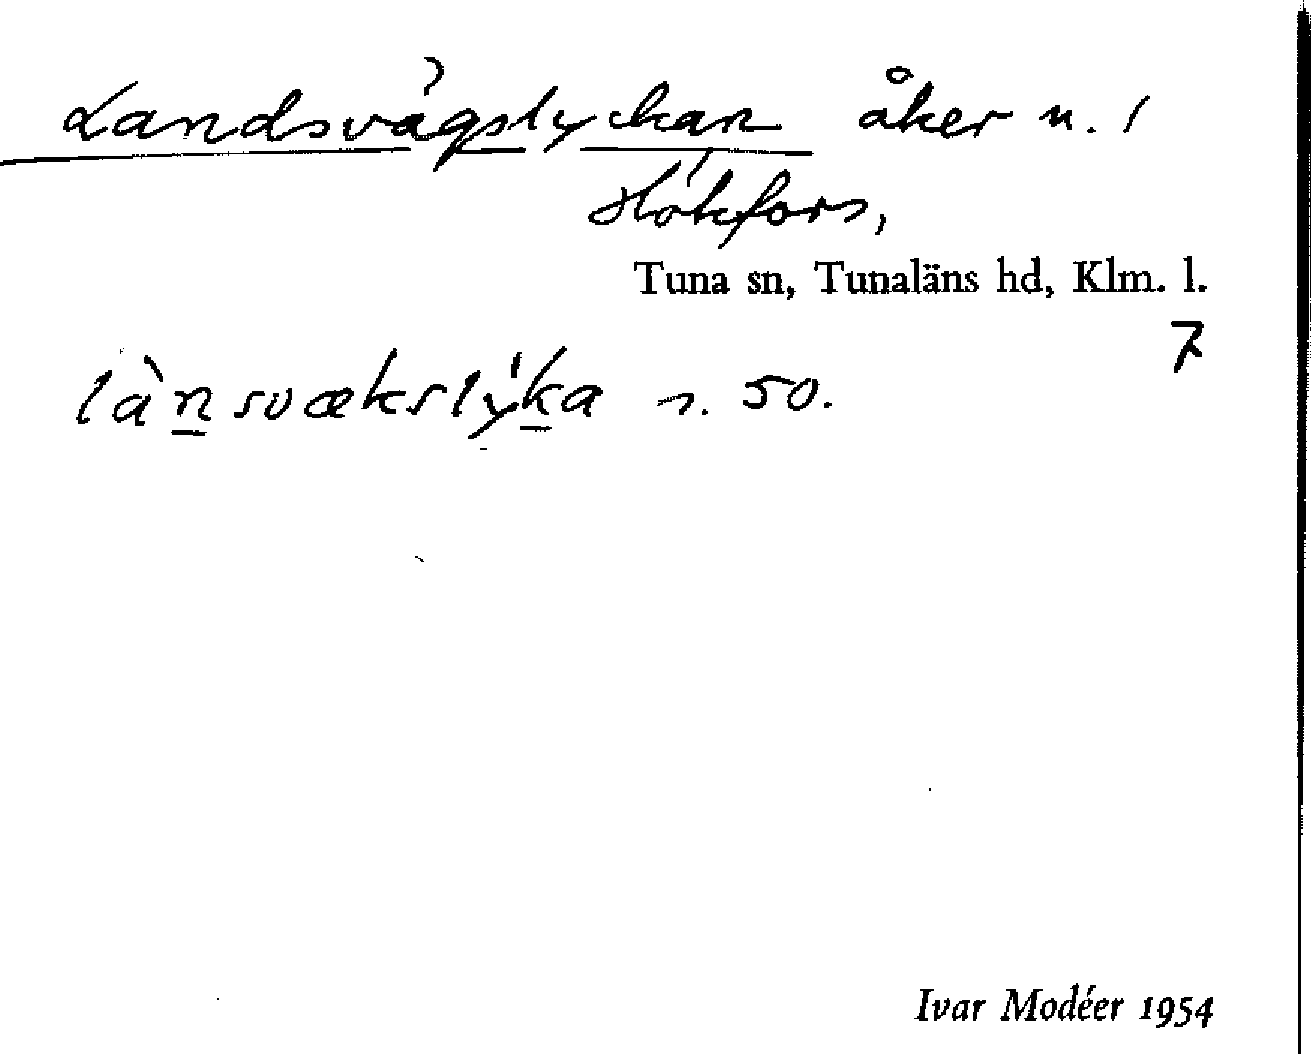 Landsvägslyckan åker n. 1
Hökfors,
Tuna sn, Tunaläns hd, Klm. l.
7
là̱nsvækslý̱ka n. 50.
Ivar Modéer 1954